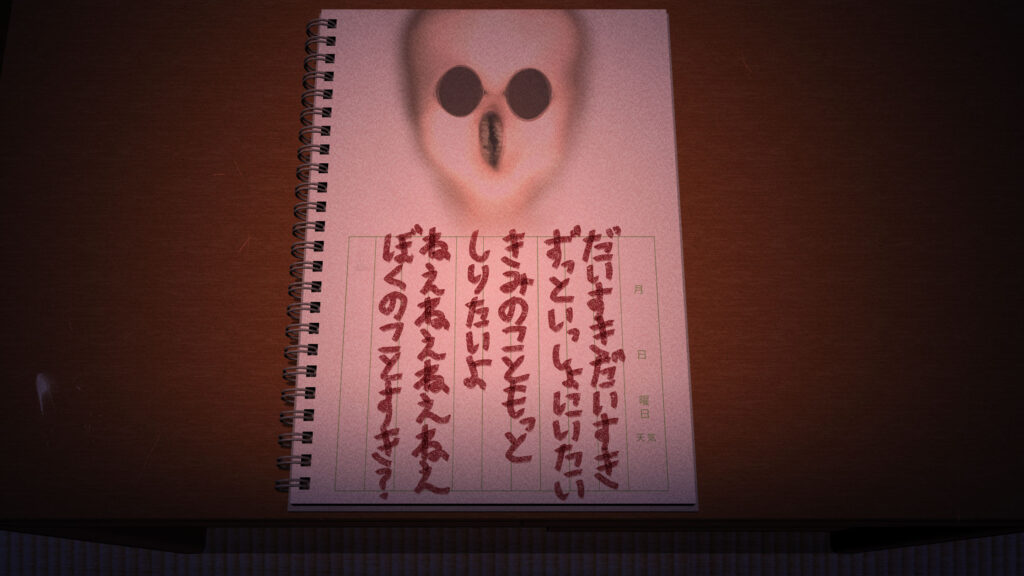 月 日 曜日 天気
だいすきだいすき
ずっといっしょにいたい
きみのこともっと
しりたいよ
ねえねえねえねえ
ぼくのことすき?